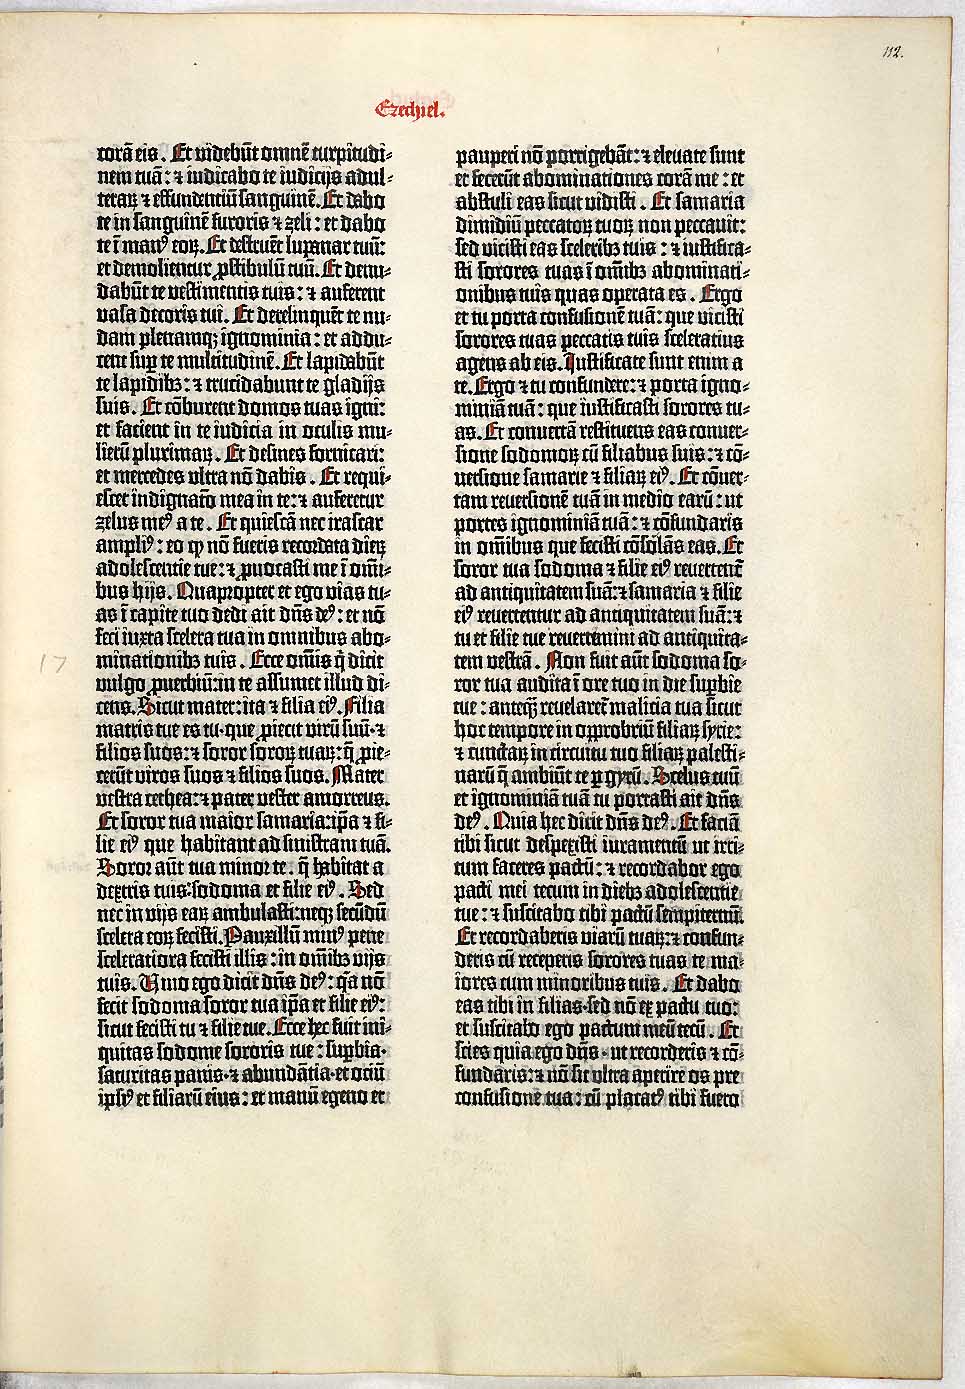 112.
Ezechiel.
corã eis. Et videbũt omnẽ turpitudi-
nem tuã: ⁊ iudicabo te iudicijs adul-
teraꝝ ⁊ effundentiũ sanguinẽ. Et dabo
te in sanguinẽ furoris ⁊ zeli: et dabo
te ĩ manꝰ eoꝝ. Et destruẽt lupanar tuũ:
et demolientur ꝓstibulũ tuũ. Et denu-
dabũt te vestimentis tuis: ⁊ auferent
vasa decoris tui. Et derelinquẽt te nu-
dam plenamqꝫ ignominia: et addu-
cent suꝑ te multitudinẽ. Et lapidabũt
te lapidibꝫ: ⁊ trucidabunt te gladijs
suis. Et cõburent domos tuas igni:
et facient in te iudicia in oculis mu-
lierũ plurimaꝝ. Et desines fornicari:
et mercedes ultra nõ dabis. Et requi-
escet indignatõ mea in te: ⁊ auferetur
zelus meꝰ a te. Et quiescã nec irascar
ampliꝰ: eo ꝙ nõ fueris recordata dieꝝ
adolescentie tue: ⁊ ꝓuocasti me ĩ omĩ-
bus hijs. Quapropter et ego vias tu-
as ĩ capite tuo dedi ait dñs deꝰ: et nõ
feci iuxta scelera tua in omnibus abo-
minationibꝫ tuis. Ecce omĩs q̃ dicit
17
vulgo ꝓuerbiũ: in te assumet illud di-
cens. Sicut mater: ita ⁊ filia eiꝰ. Filia
matris tue es tu·que ꝓiecit virũ suũ·⁊
filios suos: ⁊ soror soroꝝ tuaꝝ: q̃ ꝓie-
cerũt viros suos ⁊ filios suos. Mater
vestra cethea: ⁊ pater vester amorreus.
Et soror tua maior samaria: ip̃a ⁊ fi-
lie eiꝰ que habitant ad sinistram tuã.
Soror aũt tua minor te· q̃ habitat a
dextris tuis: sodoma et filie eiꝰ. Sed
nec in vijs eaꝝ ambulasti: neqꝫ secũdũ
scelera eoꝝ fecisti. Pauxillũ minꝰ pene
sceleratiora fecisti illis: in omĩbꝫ vijs
tuis. Vivo ego dicit dñs deꝰ: q̃a nõ
fecit sodoma soror tua ip̃a et filie eiꝰ:
sicut fecisti tu ⁊ filie tue. Ecce hec fuit ini-
quitas sodome sororis tue: suꝑbia·
saturitas panis·⁊ abundãtia·et ociũ
ipsiꝰ et filiarũ eius: et manũ egeno et
pauperi nõ porrigebãt: ⁊ elevate sunt
et fecerũt abominationes corã me: et
abstuli eas sicut vidisti. Et samaria
dimidiũ peccatoꝝ tuoꝝ non peccavit:
sed vicisti eas sceleribꝫ tuis: ⁊ iustifica-
sti sorores tuas ĩ omĩbꝫ abominati-
onibus tuis quas operata es. Ergo
et tu porta confusionẽ tuã: que vicisti
sorores tuas peccatis tuis sceleratius
agens ab eis. Justificate sunt enim a
te. Ergo ⁊ tu confundere: ⁊ porta igno-
miniã tuã: que iustificasti sorores tu-
as. Et convertã restituens eas conver-
sione sodomoꝝ cũ filiabus suis: ⁊ cõ-
versione samarie ⁊ filiaꝝ eiꝰ. Et cõver-
tam reversionẽ tuã in medio earũ: ut
portes ignominiã tuã: ⁊ cõfundaris
in omĩbus que fecisti cõsolãs eas. Et
soror tua sodoma ⁊ filie eiꝰ revertent̃
ad antiquitatem suã: ⁊ samaria ⁊ filie
eiꝰ revertentur ad antiquitatem suã: ⁊
tu et filie tue revertemini ad antiquita-
tem vestrã. Non fuit aũt sodoma so-
ror tua audita ĩ ore tuo in die suꝑbie
tue: anteqꝫ̃ revelaret̃ malicia tua sicut
hoc tempore in opprobriũ filiaꝝ syrie:
⁊ cunctaꝝ in circuitu tuo filiaꝝ palesti-
narũ q̃ ambiũt te ꝑ gyrũ. Scelus tuũ
et ignominiã tuã tu portasti ait dñs
deꝰ. Quia hec dicit dñs deꝰ. Et faciã
tibi sicut despexisti iuramentũ ut irri-
tum faceres pactũ: ⁊ recordabor ego
pacti mei tecum in diebꝫ adolescentie
tue: ⁊ suscitabo tibi pactũ sempiternũ.
Et recordaberis viarũ tuaꝝ: ⁊ confun-
deris cũ receperis sorores tuas te ma-
iores cum minoribus tuis. Et dabo
eas tibi in filias·sed nõ ex pactu tuo:
et suscitabo ego pactum meũ tecũ. Et
scies quia ego dñs· ut recorderis ⁊ cõ-
fundaris: ⁊ nõ sit ultra aperire os pre
confusione tua: cũ placatꝰ tibi fuero